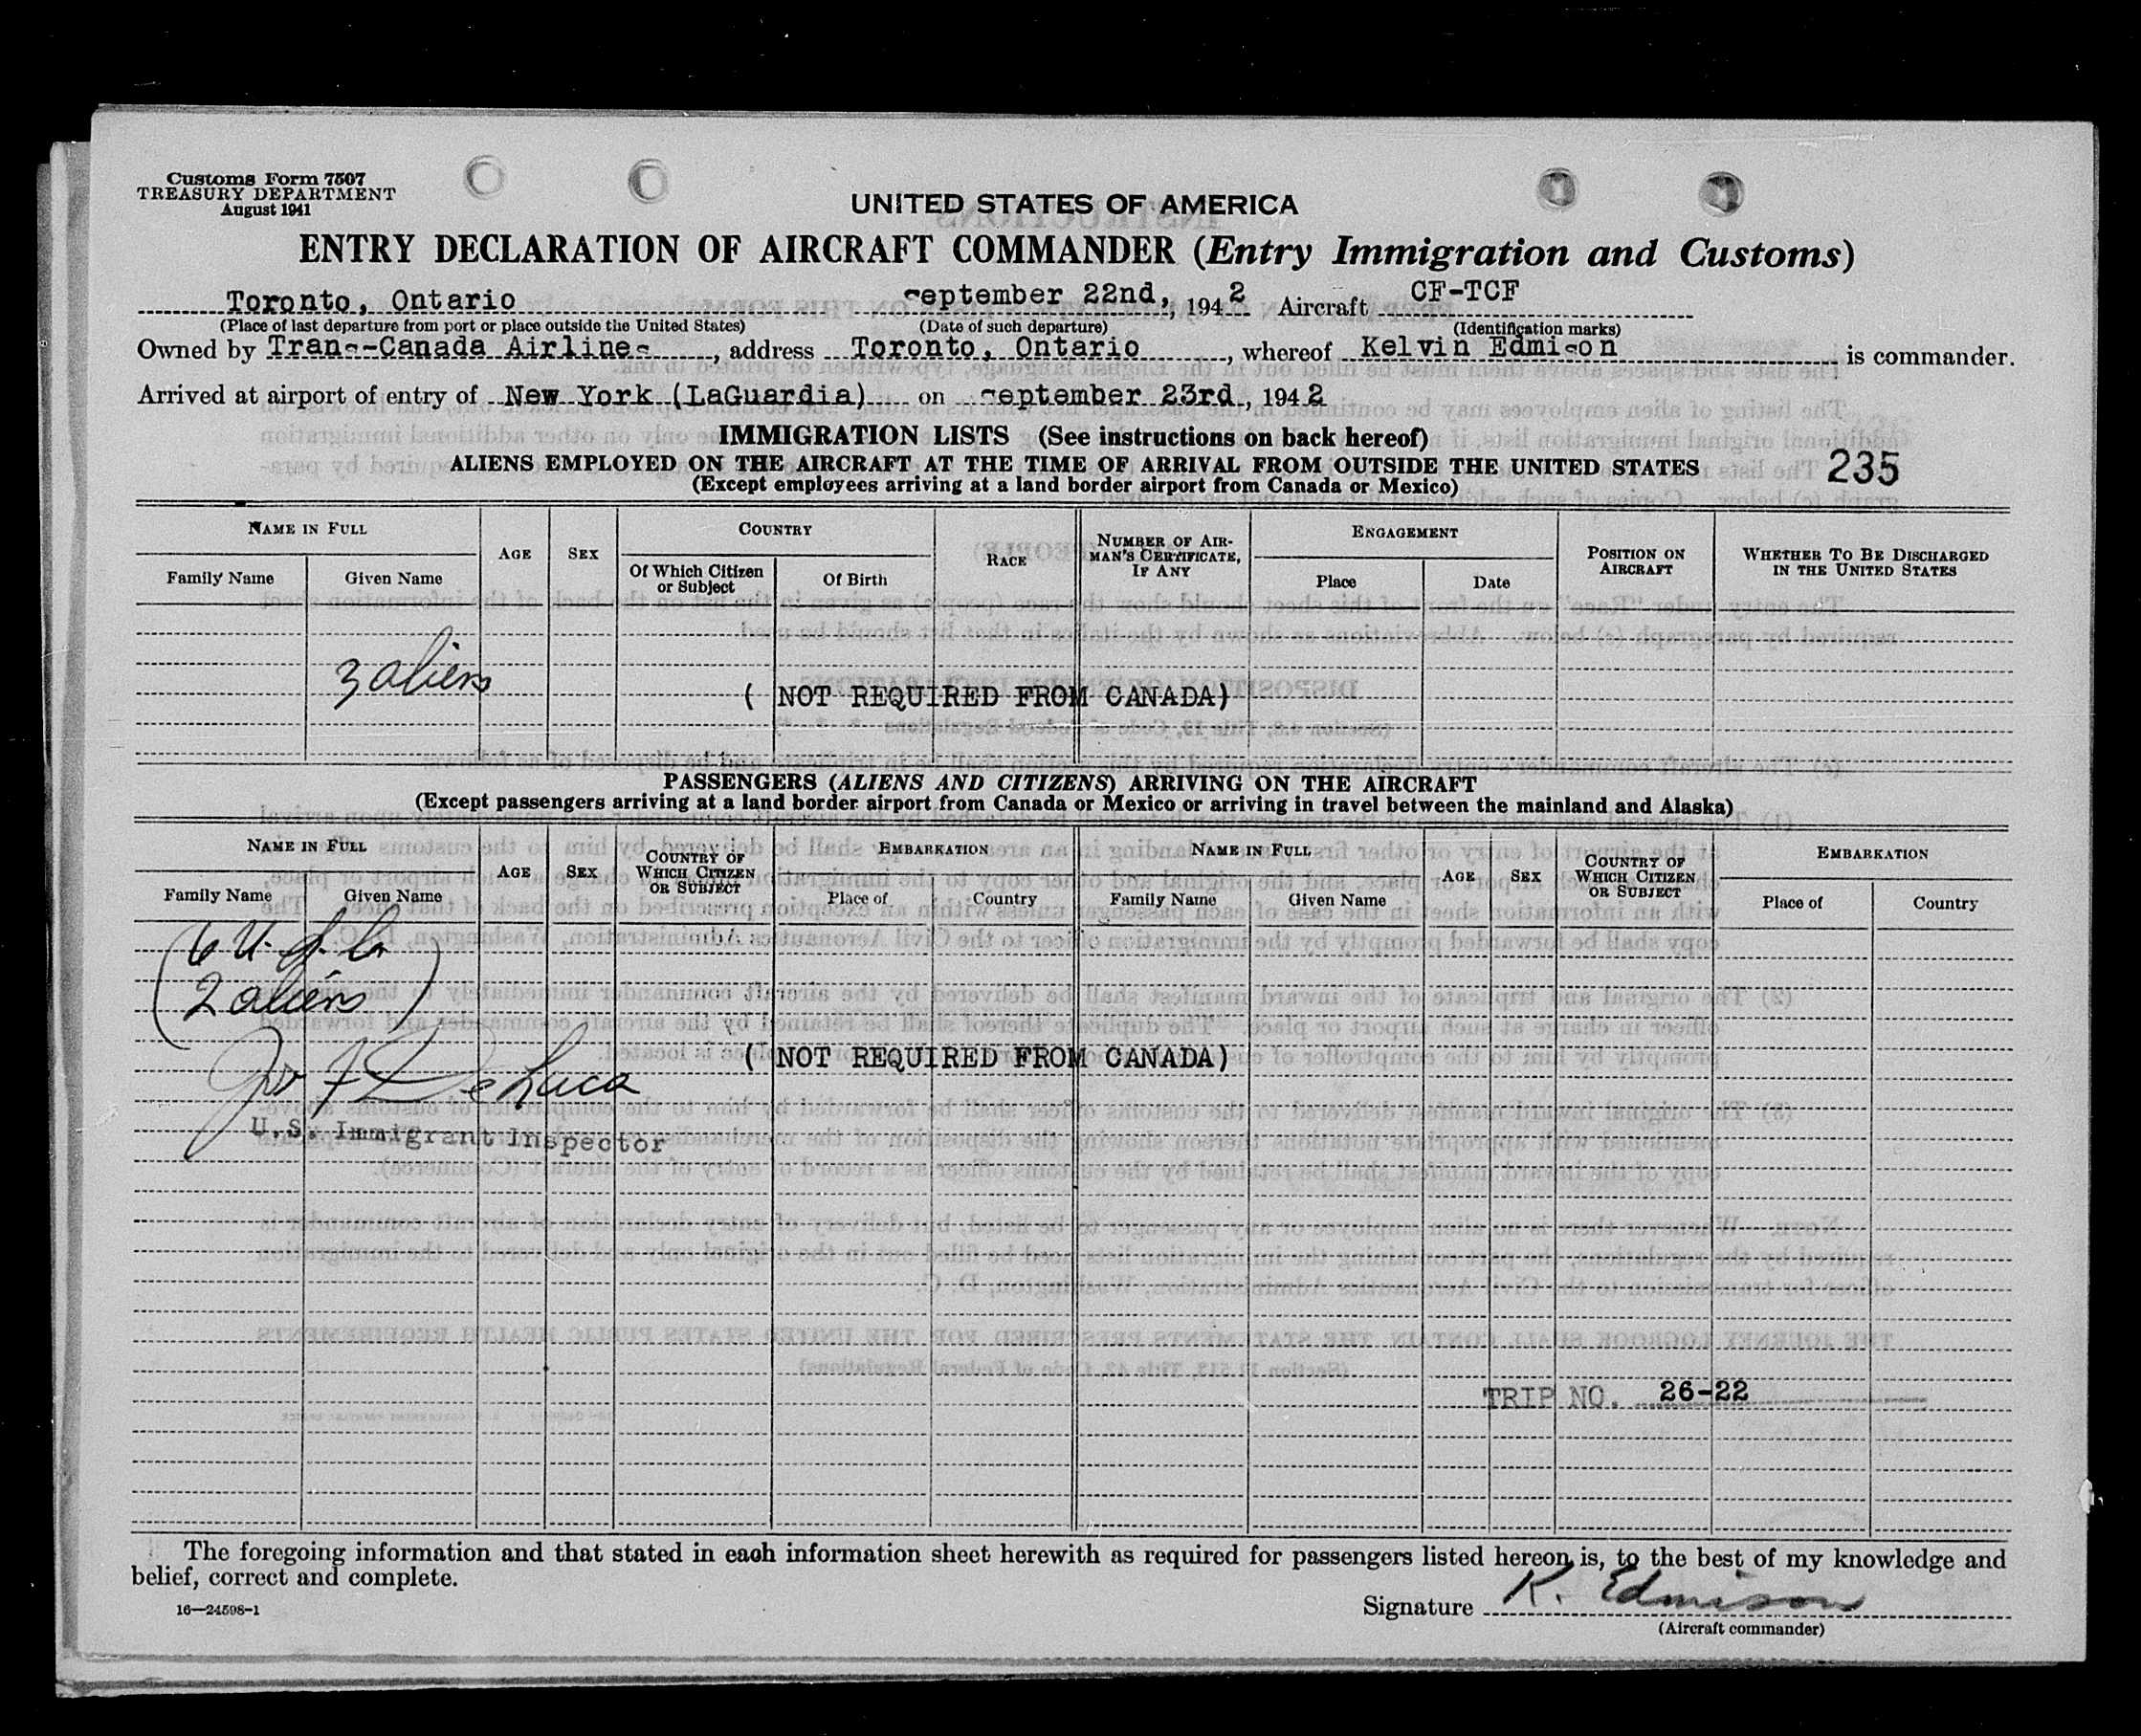 Customs Form 7507
TREASURY DEPARTMENT
August 1941
UNITED STATES OF AMERICA
ENTRY DECLARATION OF AIRCRAFT COMMANDER (Entry Immigration and Customs)
Toronto, Ontario September 22nd, 1942 Aircraft CF-TCF
(Place of last departure from port or place outside the United States) (Date of such departure) (Identification marks)
Owned by Trans-Canada Airlines, address Toronto, Ontario, whereof Kelvin Edmison is commander.
Arrived at airport of entry of New York (LaGuardia) on September 23rd, 1942
IMMIGRATION LISTS (See instructions on back hereof)
ALIENS EMPLOYED ON THE AIRCRAFT AT THE TIME OF ARRIVAL FROM OUTSIDE THE UNITED STATES 235
(Except employees arriving at a land border airport from Canada or Mexico)
NAME IN FULL AGE SEX COUNTRY RACE NUMBER OF AIRMAN'S CERTIFICATE, IF ANY ENGAGEMENT POSITION ON AIRCRAFT WHETHER TO BE DISCHARGED IN THE UNITED STATES
Family Name Given Name Of Which Citizen or Subject Of Birth Place Date
3 aliens
( NOT REQUIRED FROM CANADA)
PASSENGERS (ALIENS AND CITIZENS) ARRIVING ON THE AIRCRAFT
(Except passengers arriving at a land border airport from Canada or Mexico or arriving in travel between the mainland and Alaska)
NAME IN FULL AGE SEX COUNTRY OF WHICH CITIZEN OR SUBJECT EMBARKATION NAME IN FULL AGE SEX COUNTRY OF WHICH CITIZEN OR SUBJECT EMBARKATION
Family Name Given Name Place of Country Family Name Given Name Place of Country
(6 U.S.C.
2 aliens)
( NOT REQUIRED FROM CANADA)
Jos F De Luca
U.S. Immigrant Inspector
TRIP NO. 26-22
The foregoing information and that stated in each information sheet herewith as required for passengers listed hereon is, to the best of my knowledge and
belief, correct and complete.
16—24598-1
Signature K. Edmison
(Aircraft commander)